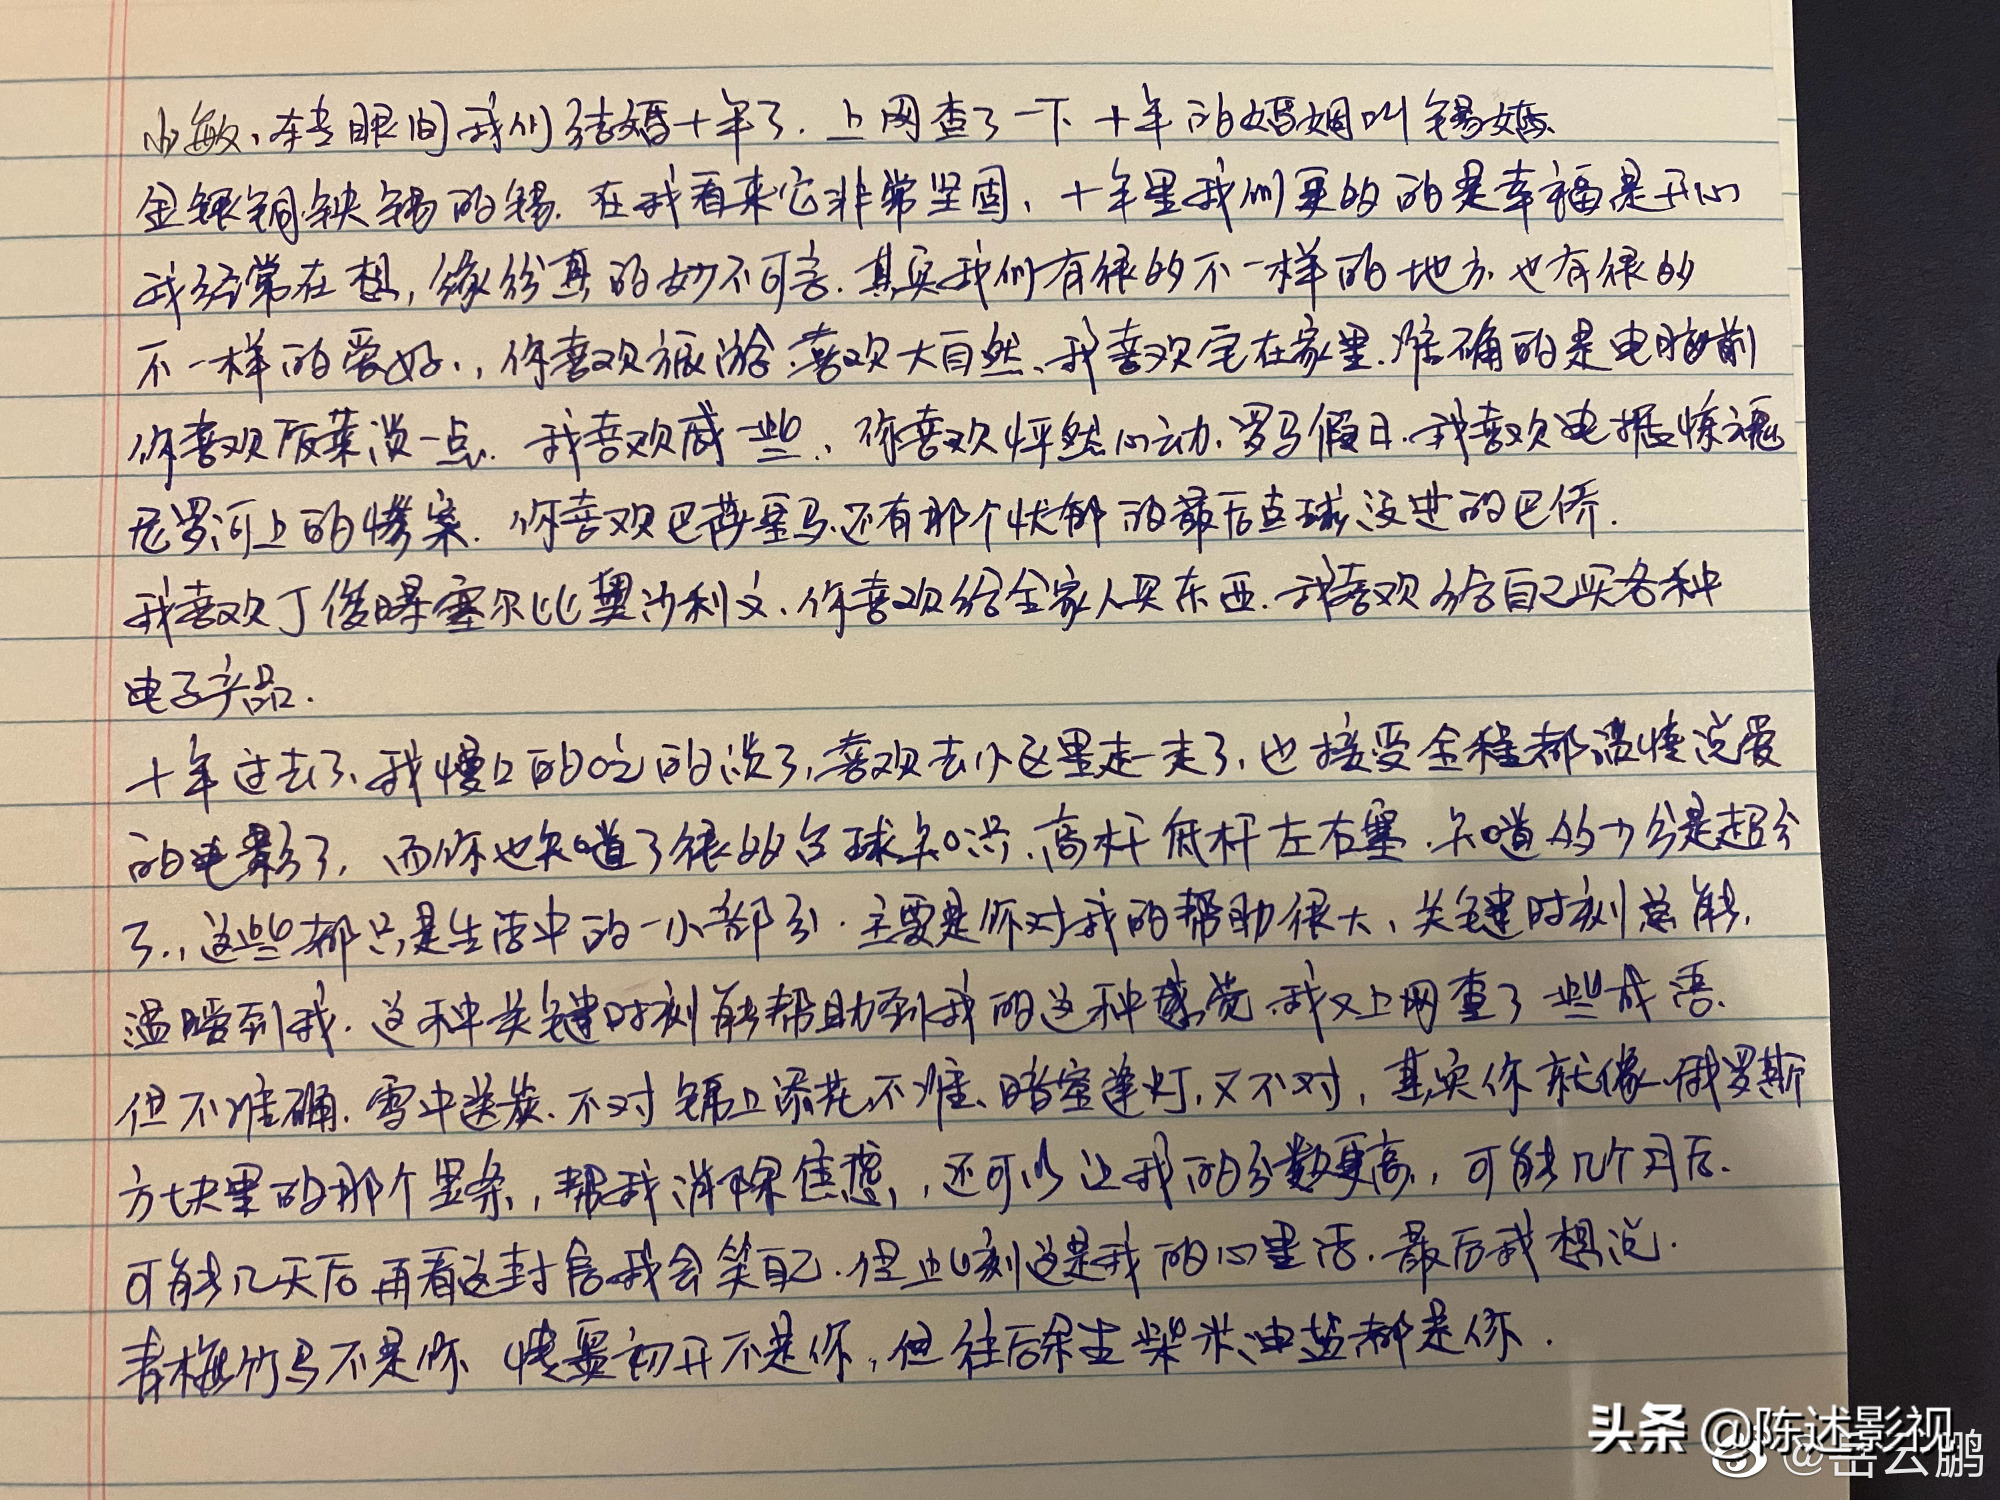 小敏、转眼间我们结婚十年了.上网查了一下十年的婚姻叫锡婚.
金银铜铁锡的锡.在我看来它非常坚固,十年里我们更多的是幸福是开心
我经常在想,缘份真的妙不可言.其实我们有很多不一样的地方.也有很多
不一样的爱好.,你喜欢旅游.喜欢大自然、我喜欢宅在家里.准确的是电脑前
你喜欢饭菜淡一点.我喜欢咸一些.,你喜欢怦然心动.罗马假日.我喜欢电锯惊魂
尼罗河上的惨案.你喜欢巴萨皇马.还有那个忧郁的最后点球没进的巴乔.
我喜欢丁俊晖塞尔比奥沙利文.你喜欢给全家人买东西.我喜欢给自己买各种
电子产品.
十年过去了.我慢慢的吃的淡了,喜欢去小区里走一走了,也接受全程都温情说爱
的电影了,而你也知道了很多台球知识.高杆低杆左右塞.知道多少分是超分
了.,这些都只是生活中的一小部分.主要是你对我的帮助很大,关键时刻总能,
温暖到我.这种关键时刻能帮助到我的这种感觉.我又上网查了一些成语.
但不准确.雪中送炭.不对 锦上添花.不准、暗室逢灯,又不对,其实你就像.俄罗斯
方块里的那个竖条,帮我消除焦虑,,还可以让我的分数更高.,可能几个月后.
可能几天后再看这封信我会笑自己.但此刻这是我的心里话.最后我想说.
青梅竹马不是你 情窦初开不是你,但往后余生柴米油盐都是你.
头条 @陈述影视
@岳云鹏